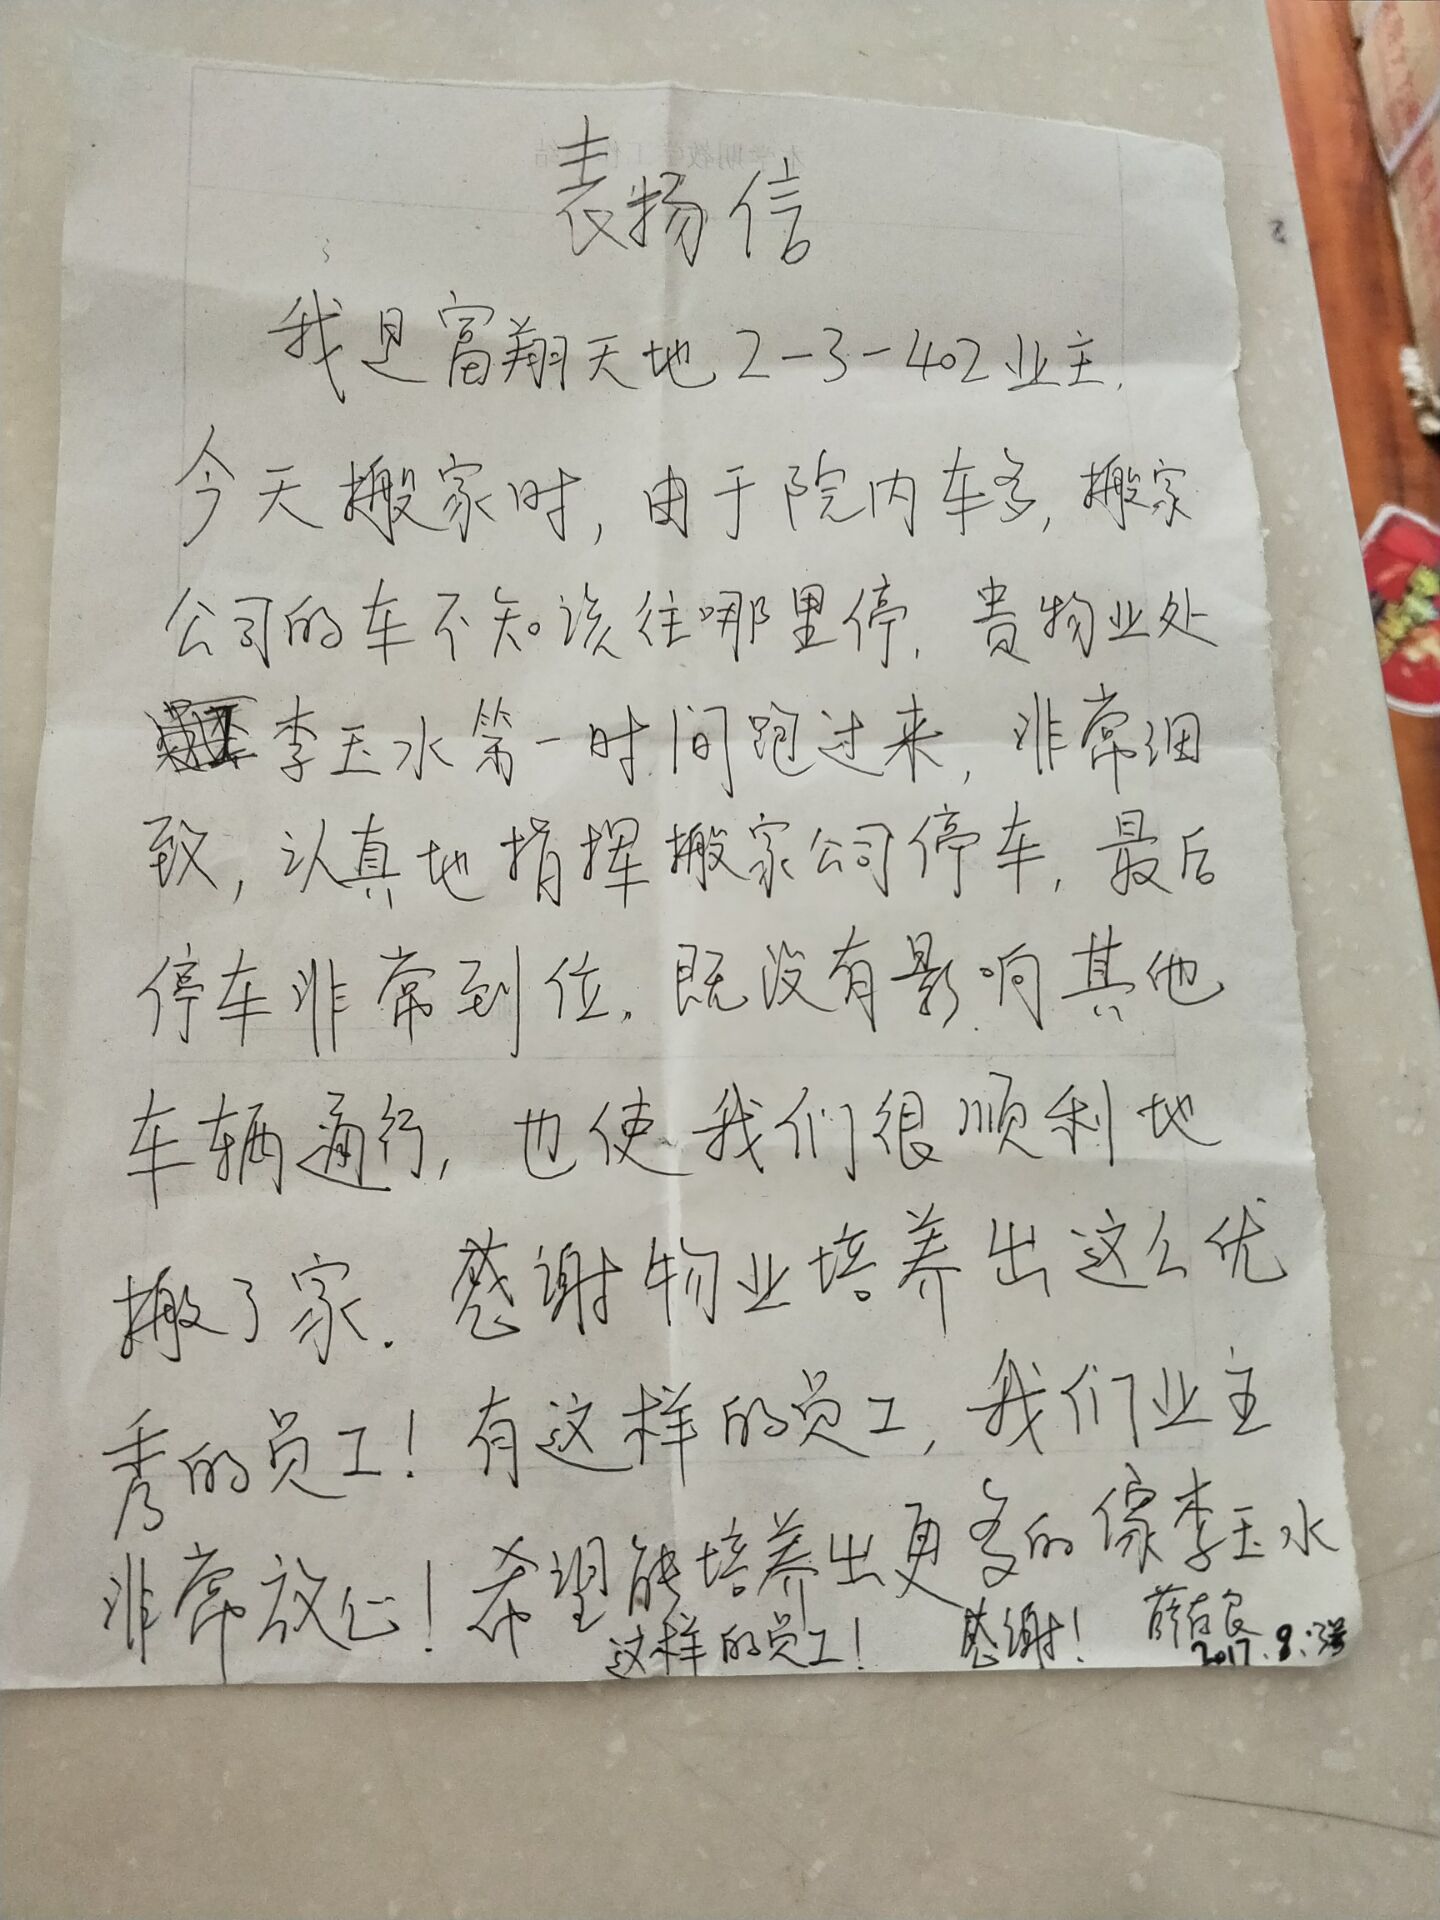 表扬信
我是富翔天地2-3-402业主.
今天搬家时,由于院内车多,搬家
公司的车不知该往哪里停.贵物业处
李玉水第一时间跑过来,非常细
致,认真地指挥搬家公司停车,最后
停车非常到位.既没有影响其他
车辆通行,也使我们很顺利地
搬了家.感谢物业培养出这么优
秀的员工!有这样的员工,我们业主
非常放心!希望能培养出更多的像李玉水
这样的员工! 感谢!
2017.8.